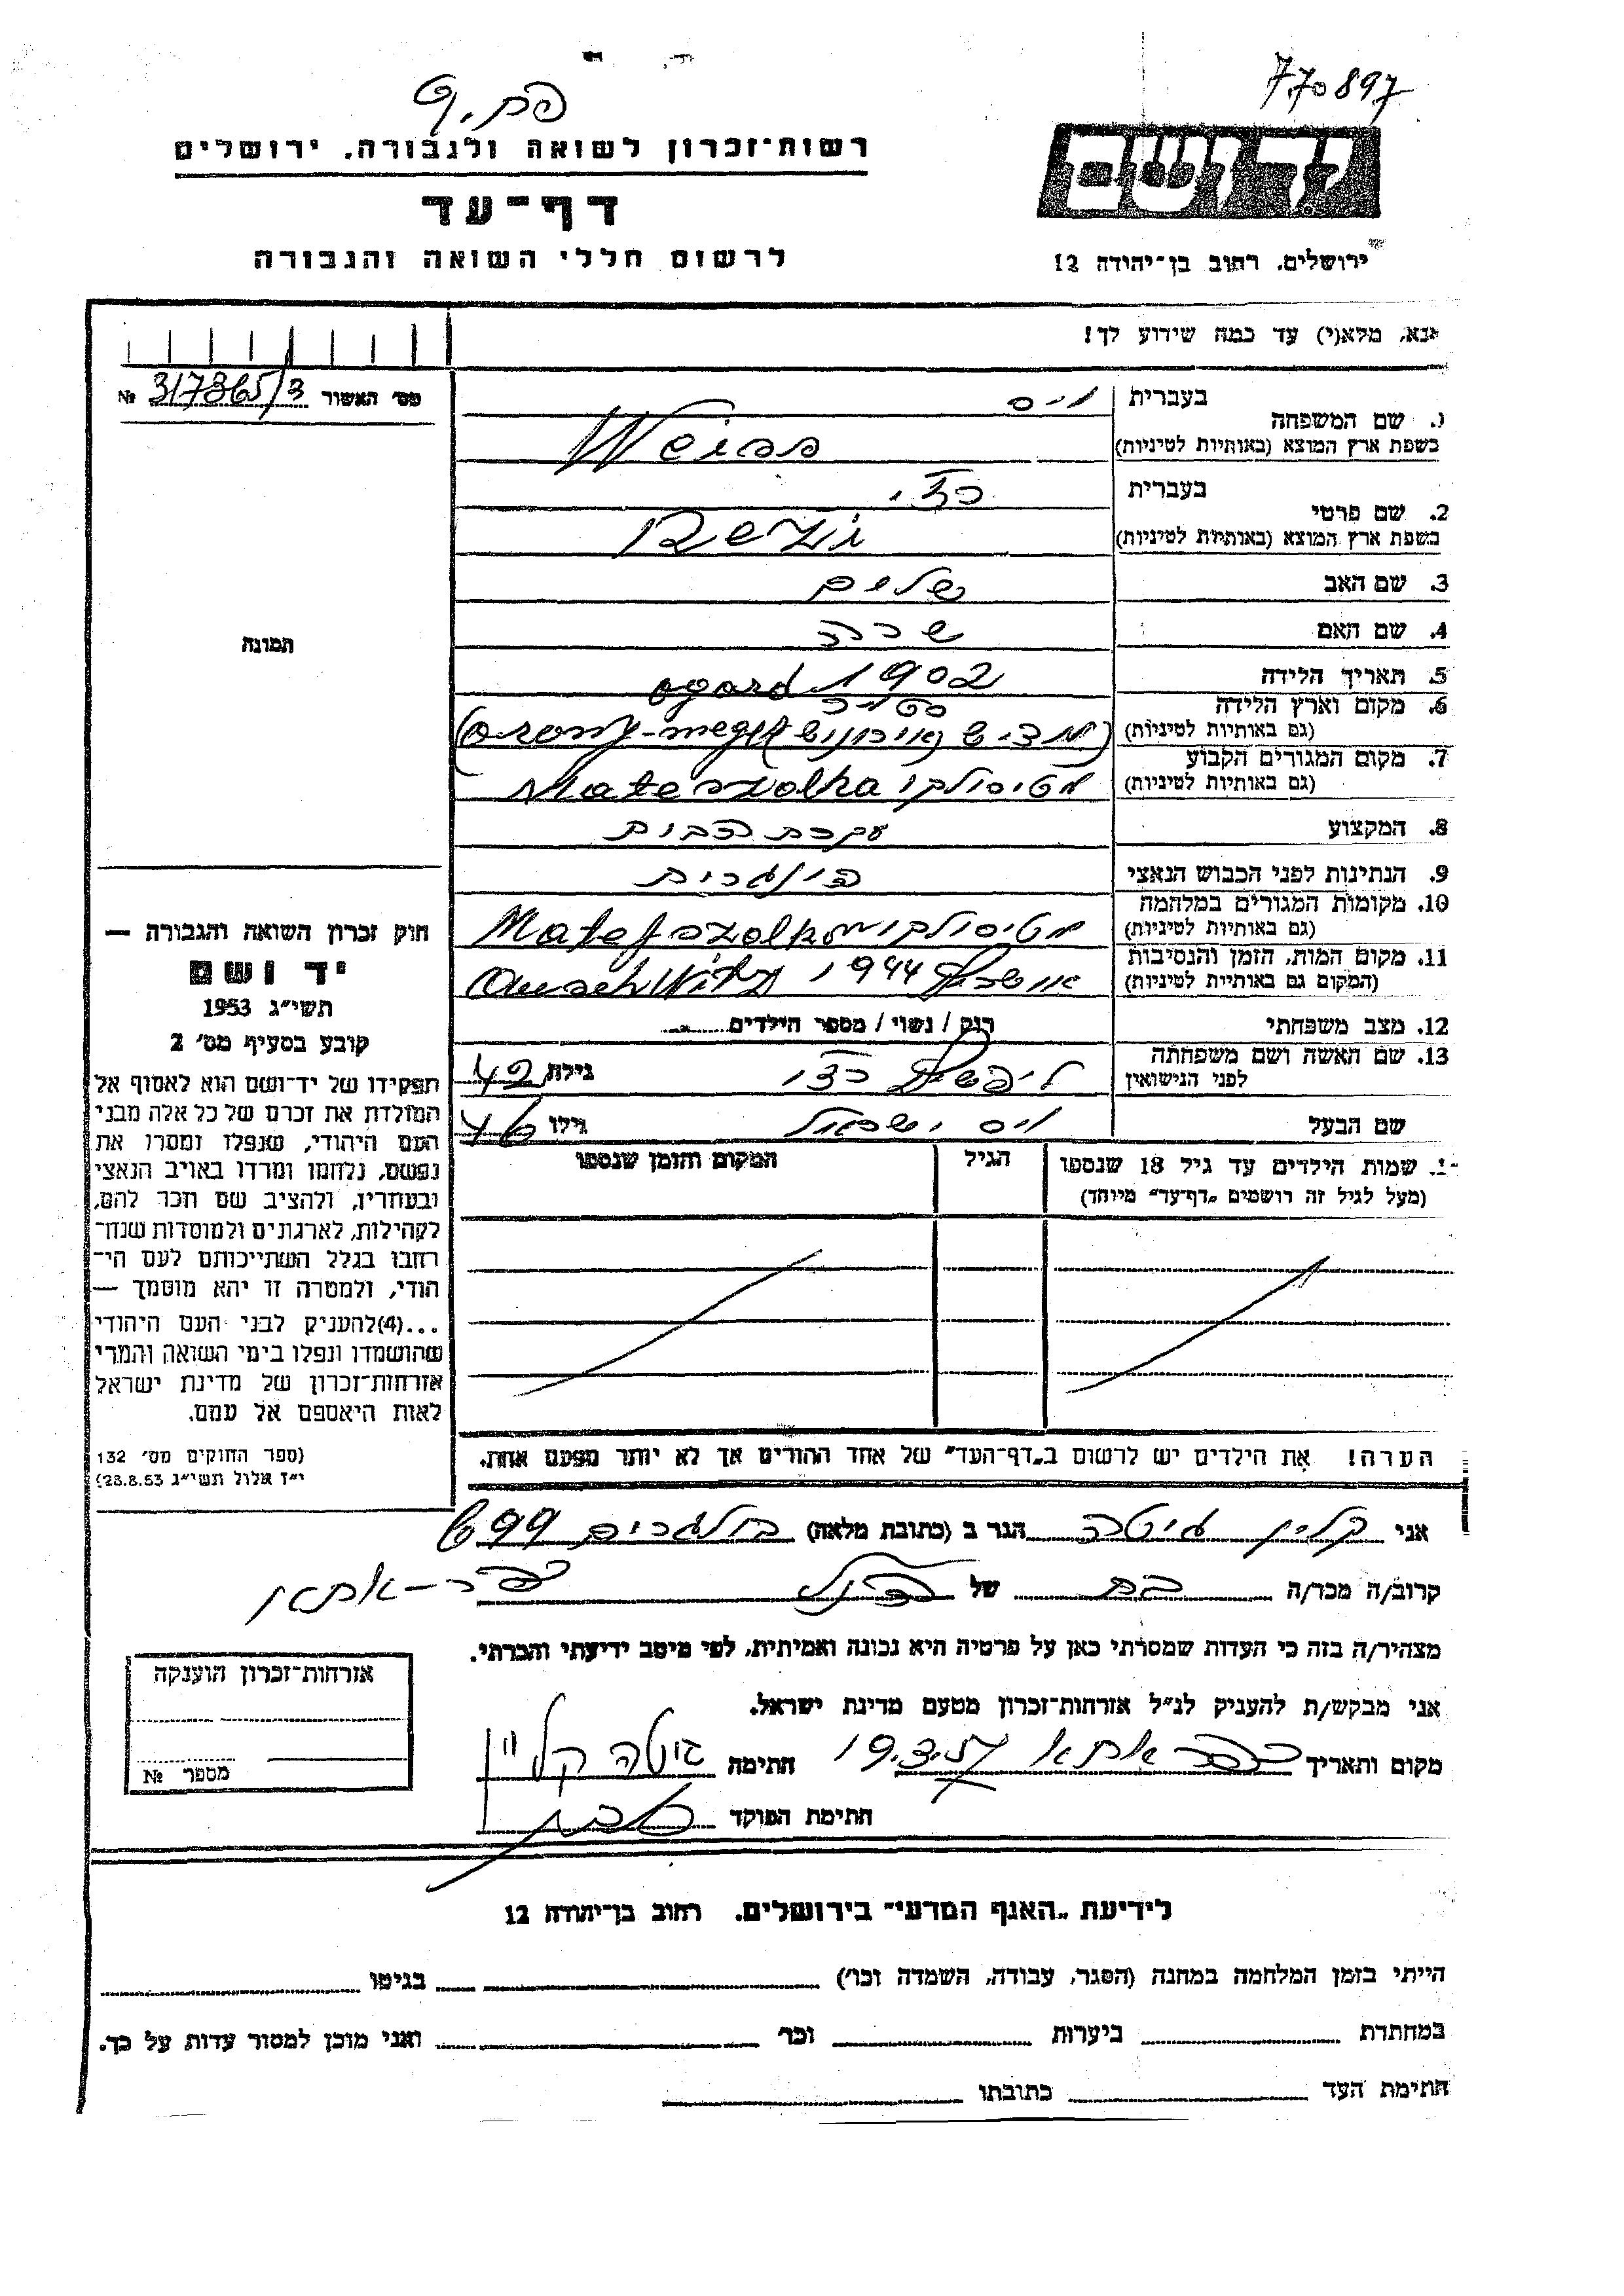 770897
רשות־זכרון לשואה ולגבורה, ירושלים
דף־עד
לרשום חללי השואה והגבורה
ירושלים, רחוב בן־יהודה 12
אנא, מלא(י) עד כמה שידוע לך!
מס׳ האשור 317365/3 №
תמונה
בעברית וייס
1. שם המשפחה
בשפת ארץ המוצא (באותיות לטיניות) Weiss
בעברית
2. שם פרטי
בשפת ארץ המוצא (באותיות לטיניות)
3. שם האב שלום
4. שם האם שרה
5. תאריך הלידה 1902
6. מקום וארץ הלידה
(גם באותיות לטיניות)
7. מקום המגורים הקבוע
(גם באותיות לטיניות) Mateszolka
8. המקצוע עקרת הבית
9. הנתינות לפני הכבוש הנאצי
10. מקומות המגורים במלחמה
(גם באותיות לטיניות)
11. מקום המות, הזמן והנסיבות
(המקום גם באותיות לטיניות) 1944
12. מצב משפחתי רוק / נשוי / מספר הילדים
13. שם האשה ושם משפחתה
לפני הנישואין גילה 42
שם הבעל וייס ישראל גילו 46
שמות הילדים עד גיל 18 שנספו הגיל המקום והזמן שנספו
(מעל לגיל זה רושמים „דף־עד״ מיוחד)
הערה! את הילדים יש לרשום ב„דף־העד״ של אחד ההורים אך לא יותר מפעם אחת.
חוק זכרון השואה והגבורה —
יד ושם
תשי״ג 1953
קובע בסעיף מס׳ 2
תפקידו של יד־ושם הוא לאסוף אל
המולדת את זכרם של כל אלה מבני
העם היהודי, שנפלו ומסרו את
נפשם, נלחמו ומרדו באויב הנאצי
ובעוזריו, ולהציב שם וזכר להם,
לקהילות, לארגונים ולמוסדות שנח־
רבו בגלל השתייכותם לעם הי־
הודי, ולמטרה זו יהא מוסמך —
...(4)להעניק לבני העם היהודי
שהושמדו ונפלו בימי השואה והמרי
אזרחות־זכרון של מדינת ישראל
לאות היאספם אל עמם.
(ספר החוקים מס׳ 132
י״ז אלול תשי״ג 28.8.53)
אני קליין גיטה הגר ב (כתובת מלאה) 699
קרוב/ה מכר/ה בת של הנ״ל כפר־אתא
מצהיר/ה בזה כי העדות שמסרתי כאן על פרטיה היא נכונה ואמיתית, לפי מיטב ידיעתי והכרתי.
אני מבקש/ת להעניק לנ״ל אזרחות־זכרון מטעם מדינת ישראל.
מקום ותאריך כפר אתא 19.3.57 חתימה גיטה קליין
חתימת הפוקד
אזרחות־זכרון הוענקה
מספר №
לידיעת „האגף המדעי״ בירושלים, רחוב בן־יהודה 12
הייתי בזמן המלחמה במחנה (הסגר, עבודה, השמדה וכו׳) בגיטו
במחתרת ביערות וכו׳ ואני מוכן למסור עדות על כך.
חתימת העד כתובתו